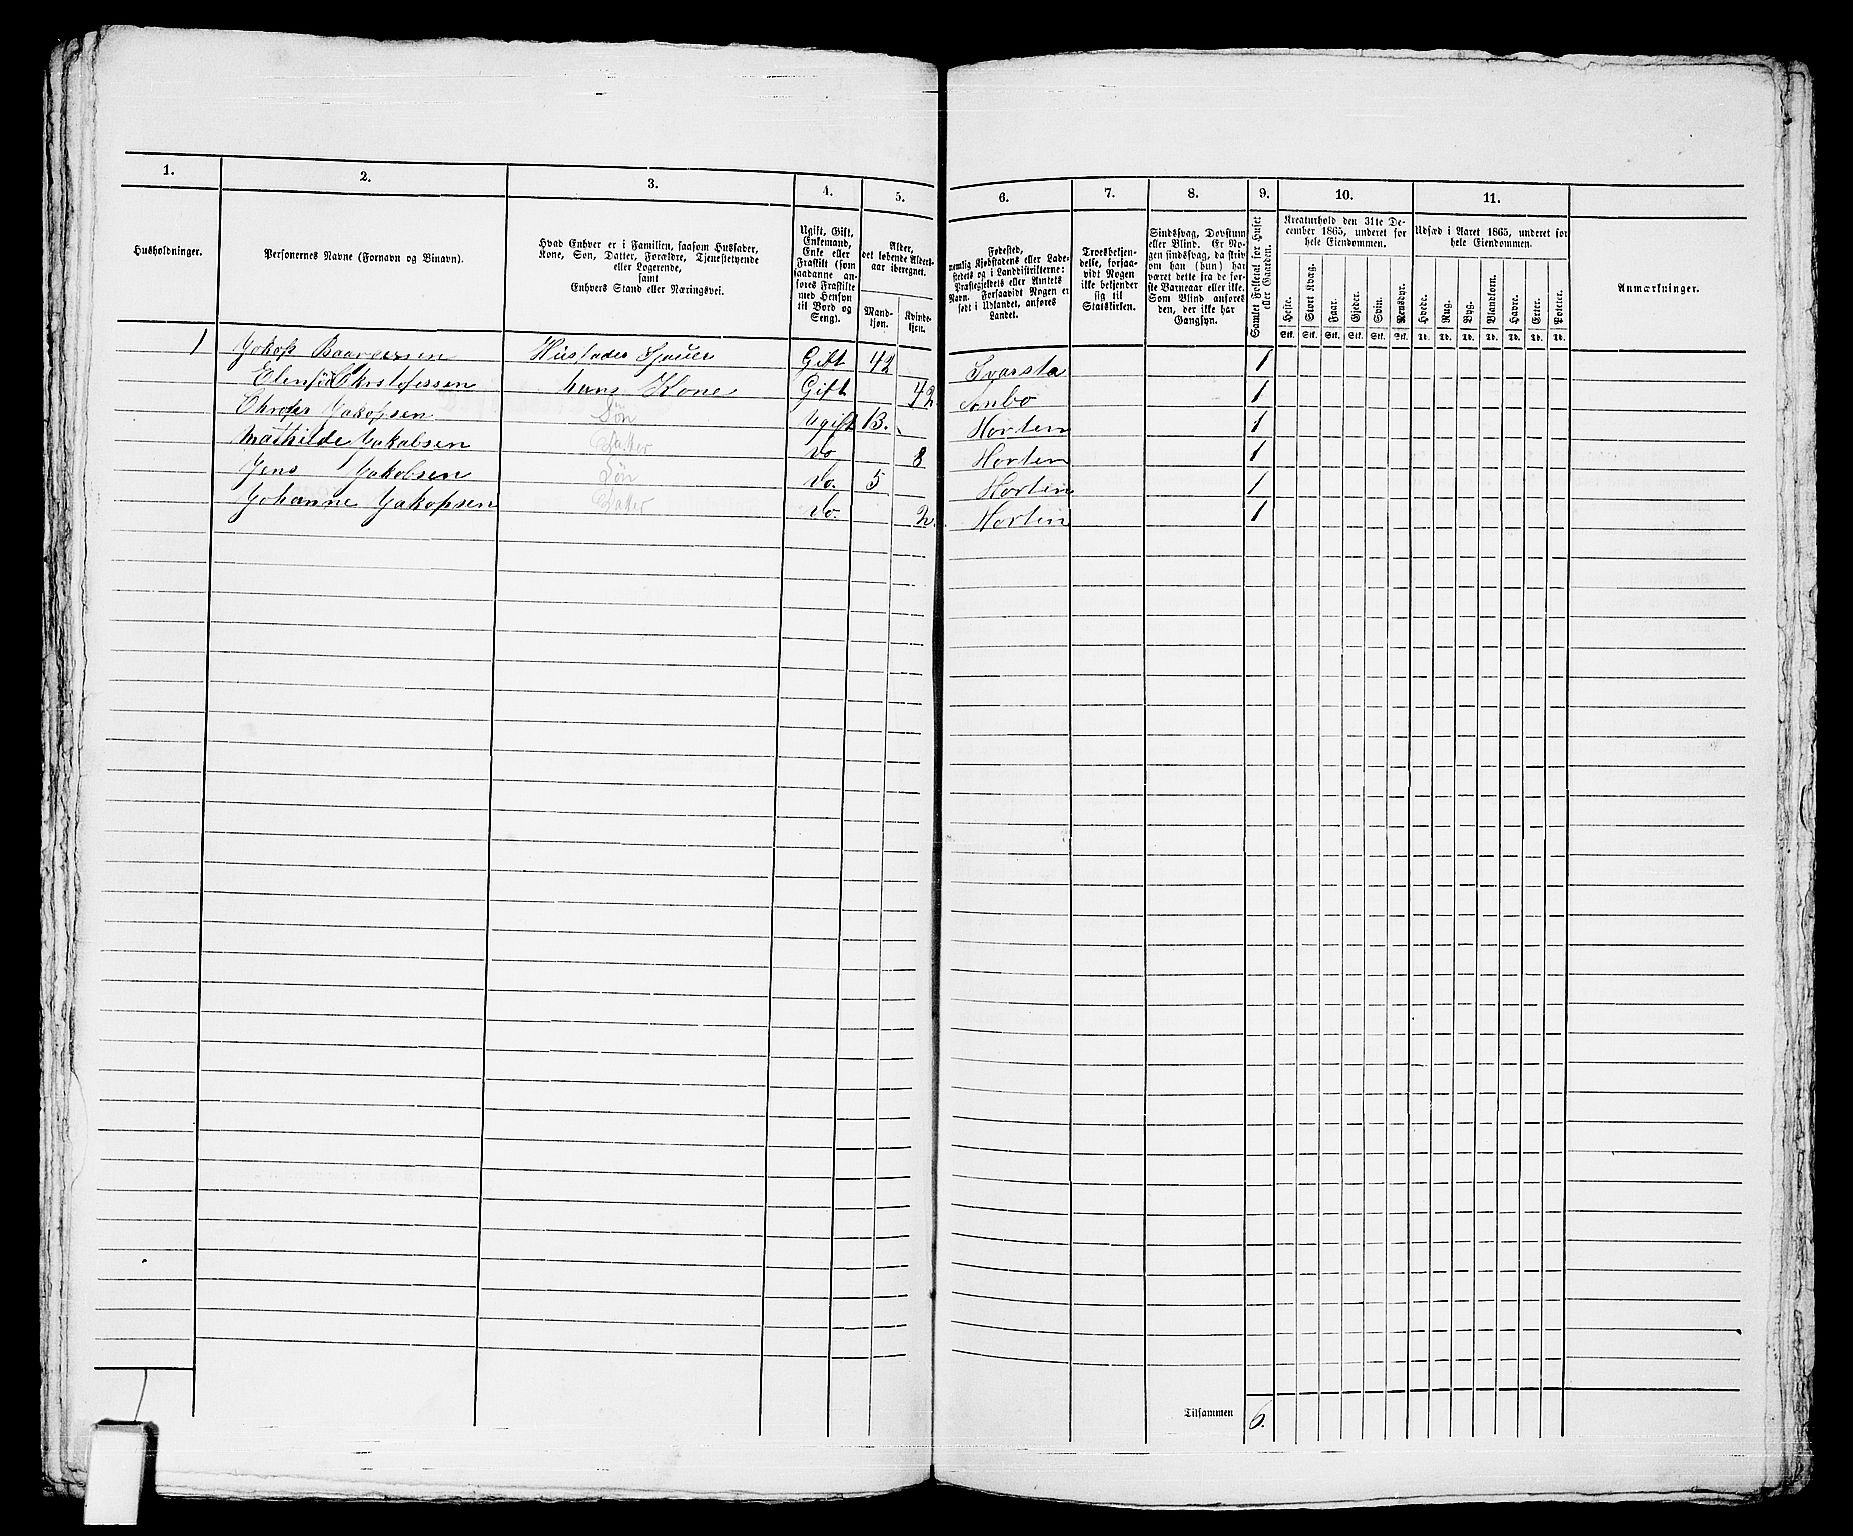 1. 2. 3. 4. 5. 6. 7. 8. 9. 10. 11.
Husholdninger.
Personernes Navne (Fornavn og Binavn).
Hvad Enhver er i Familien, saasom Husfader,
Kone, Søn, Datter, Forældre, Tjenestetyende
eller Logerende,
samt
Enhvers Stand eller Næringsvei.
Ugift, Gift,
Enkemand,
Enke eller
Fraskilt (som
saadanne an-
føres Fraskilte
med Hensyn
til Bord og
Seng).
Alder,
det løbende Alders-
aar iberegnet.
Mand-
kjøn.
Kvinde-
kjøn.
Fødested,
nemlig Kjøbstadens eller Lade-
stedets og i Landdistrikterne:
Præstegjeldets eller Amtets
Navn. Forsaavidt Nogen er
født i Udlandet, anføres
Landet.
Troesbekjen-
delse, forsaa-
vidt Nogen
ikke bekjender
sig til
Statskirken.
Sindssvag, Døvstum
eller Blind. Er No-
gen sindssvag, da skriv
om han (hun) har
været dette fra de før-
ste Barneaar eller ikke.
Som Blind anføres
den, der ikke har
Gangsyn.
Samlet Folketal for Huset
eller Gaarden.
Kreaturhold den 31te De-
cember 1865, underet for
hele Eiendommen.
Heste. Stort Kvæg. Faar. Gjeder. Svin. Rensdyr.
Stk. Stk. Stk. Stk. Stk. Stk.
Udsæd i Aaret 1865, underet for
hele Eiendommen.
Hvede. Rug. Byg. Blandkorn. Havre. Erter. Poteter.
Td. Td. Td. Td. Td. Td. Td.
Anmærkninger.
1 Jakop Gift 42 Svarsta 1
hans Kone Gift 42 1
Jakopsen Søn Ugift 13. Horten 1
Mathilde Jakobsen Datter Do 8 Horten 1
Jens Jakobsen Søn Do. 5 Horten 1
Johanne Jakopsen Datter Do. 2 Horten 1
Tilsammen 6.